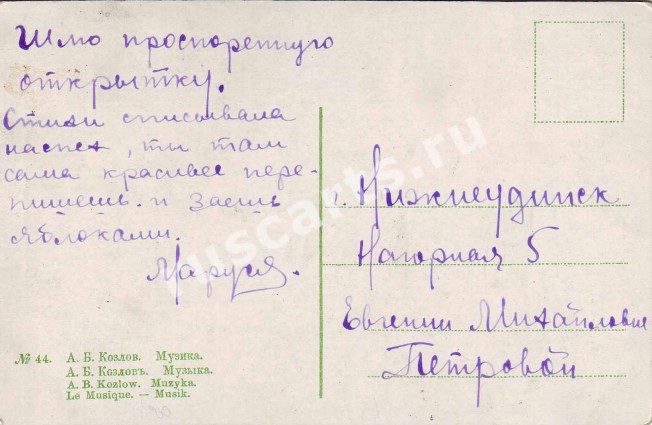 Шлю проспоренную
открытку.
Стихи списывала
наспех, ты там
сама красивее пере-
пишешь. и заешь
яблоками.
Маруся.
г. Нижнеудинск
Нагорная 5
Евгении Михайловне
Петровой
№ 44. А. Б. Козлов. Музика.
А. Б. Козловъ. Музыка.
A. B. Kozlow. Muzyka.
Le Musique. — Musik.
ruscarts.ru